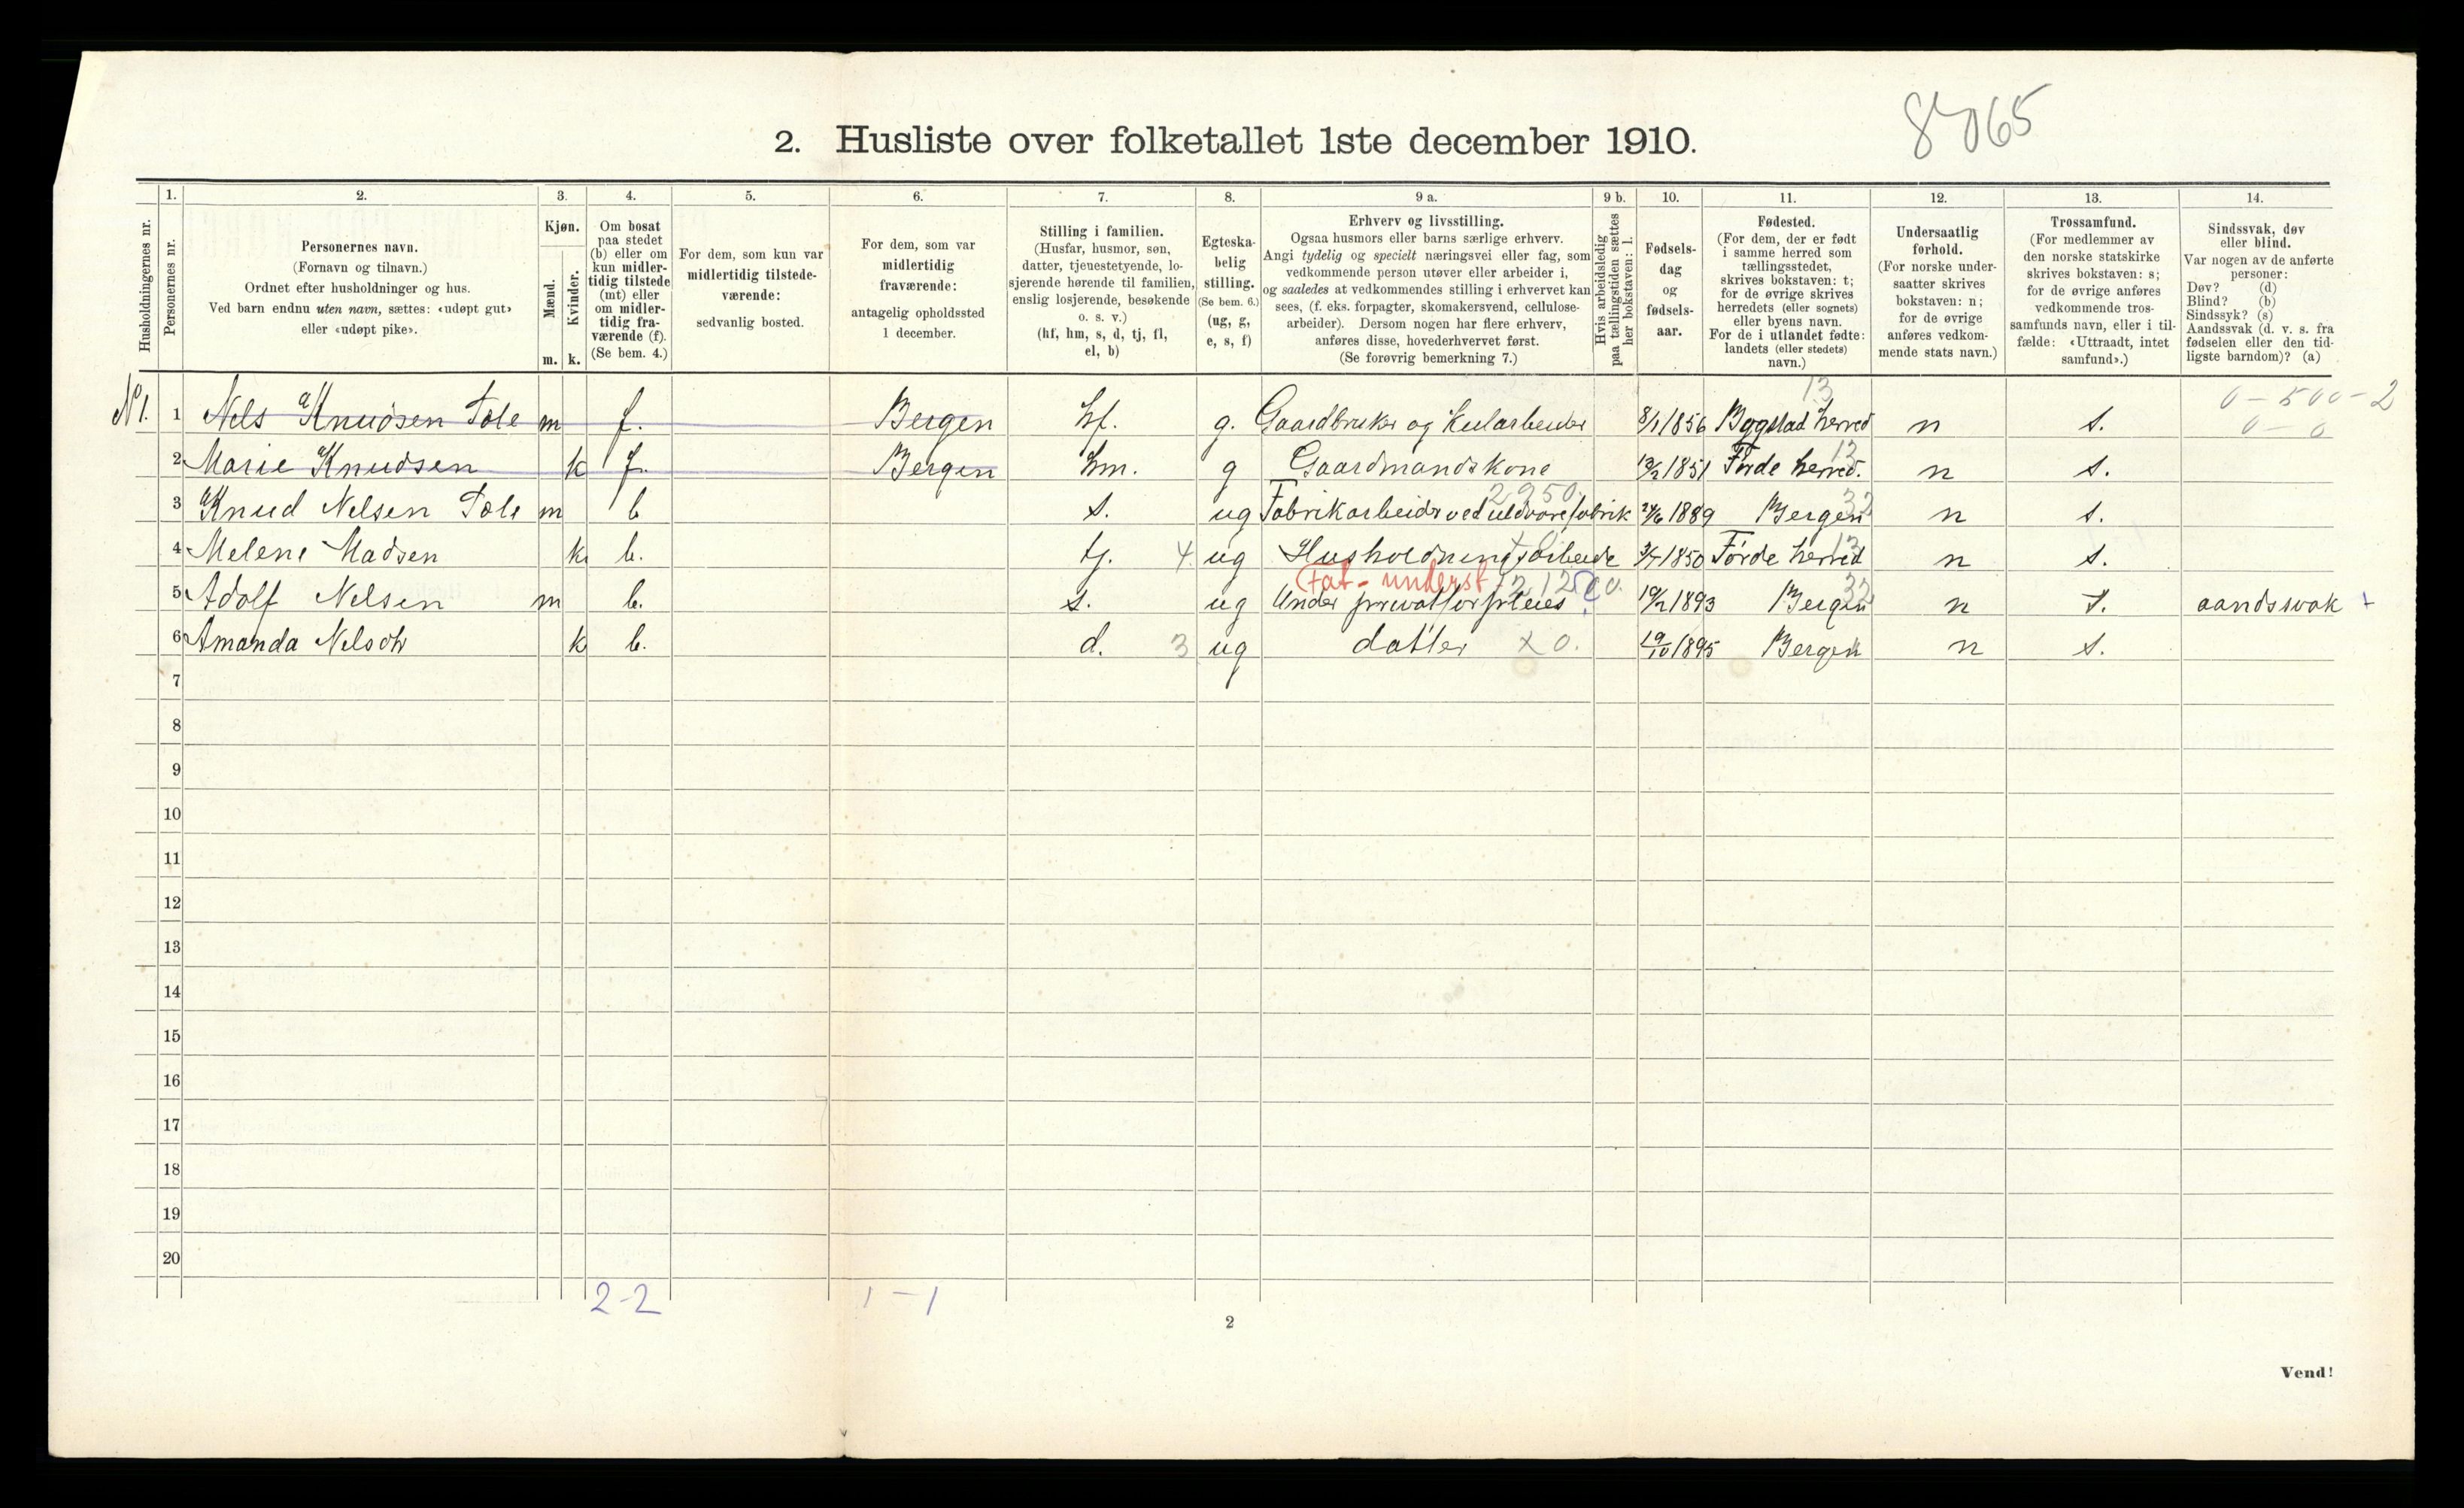 8065
2. Husliste over folketallet 1ste december 1910.
Husholdningernes nr.
1.
Personernes nr.
2.
Personernes navn.
(Fornavn og tilnavn.)
Ordnet efter husholdninger og hus.
Ved barn endnu uten navn, sættes: «udøpt gut»
eller «udøpt pike».
3.
Kjøn.
Mænd.
Kvinder.
m. k.
4.
Om bosat
paa stedet
(b) eller om
kun midler-
tidig tilstede
(mt) eller
om midler-
tidig fra-
værende (f).
(Se bem. 4.)
5.
For dem, som kun var
midlertidig tilstede-
værende:
sedvanlig bosted.
6.
For dem, som var
midlertidig
fraværende:
antagelig opholdssted
1 december.
7.
Stilling i familien.
(Husfar, husmor, søn,
datter, tjenestetyende, lo-
sjerende hørende til familien,
enslig losjerende, besøkende
o. s. v.)
(hf, hm, s, d, tj, fl,
el, b)
8.
Egteska-
belig
stilling.
(Se bem. 6.)
(ug, g,
e, s, f)
9 a.
Erhverv og livsstilling.
Ogsaa husmors eller barns særlige erhverv.
Angi tydelig og specielt næringsvei eller fag, som
vedkommende person utøver eller arbeider i,
og saaledes at vedkommendes stilling i erhvervet kan
sees, (f. eks. forpagter, skomakersvend, cellulose-
arbeider). Dersom nogen har flere erhverv,
anføres disse, hovederhvervet først.
(Se forøvrig bemerkning 7.)
9 b.
Hvis arbeidsledig
paa tællingstiden sættes
her bokstaven: l.
10.
Fødsels-
dag
og
fødsels-
aar.
11.
Fødested.
(For dem, der er født
i samme herred som
tællingsstedet,
skrives bokstaven: t;
for de øvrige skrives
herredets (eller sognets)
eller byens navn.
For de i utlandet fødte:
landets (eller stedets)
navn.)
12.
Undersaatlig
forhold.
(For norske under-
saatter skrives
bokstaven: n;
for de øvrige
anføres vedkom-
mende stats navn.)
13.
Trossamfund.
(For medlemmer av
den norske statskirke
skrives bokstaven: s;
for de øvrige anføres
vedkommende tros-
samfunds navn, eller i til-
fælde: «Uttraadt, intet
samfund».)
14.
Sindssvak, døv
eller blind.
Var nogen av de anførte
personer:
Døv? (d)
Blind? (b)
Sindssyk? (s)
Aandssvak (d. v. s. fra
fødselen eller den tid-
ligste barndom)? (a)
13 0 - 500 - 2
N 1. 1 Nels Knudsen Tole m f. Bergen hf. g. Gaardbruker og 8/1 1856 Bygstad herred n s. 0 - 0
13
2 Marie Knudsen k f. Bergen hm. g Gaardmandskone 1851 Førde herred. n s.
2950. 32
3 Knud Nelsen Tole m b s. ug Fabrikarbeider ved uldvarefabrik 1889 Bergen n s.
13
4 Melene Madsen k b. tj. 4. ug Husholdningsarbeide 1850 Førde herred n s.
Fat-underst 32
5 Adolf Nelsen m b. s. ug Under privatforpleies 1893 Bergen n s. aandssvak +
6 Amanda Nelsen k b. d. 3 ug datter x 0. 19/10 1895 Bergen n s.
7
8
9
10
11
12
13
14
15
16
17
18
19
20
2-2 1-1
2
Vend!